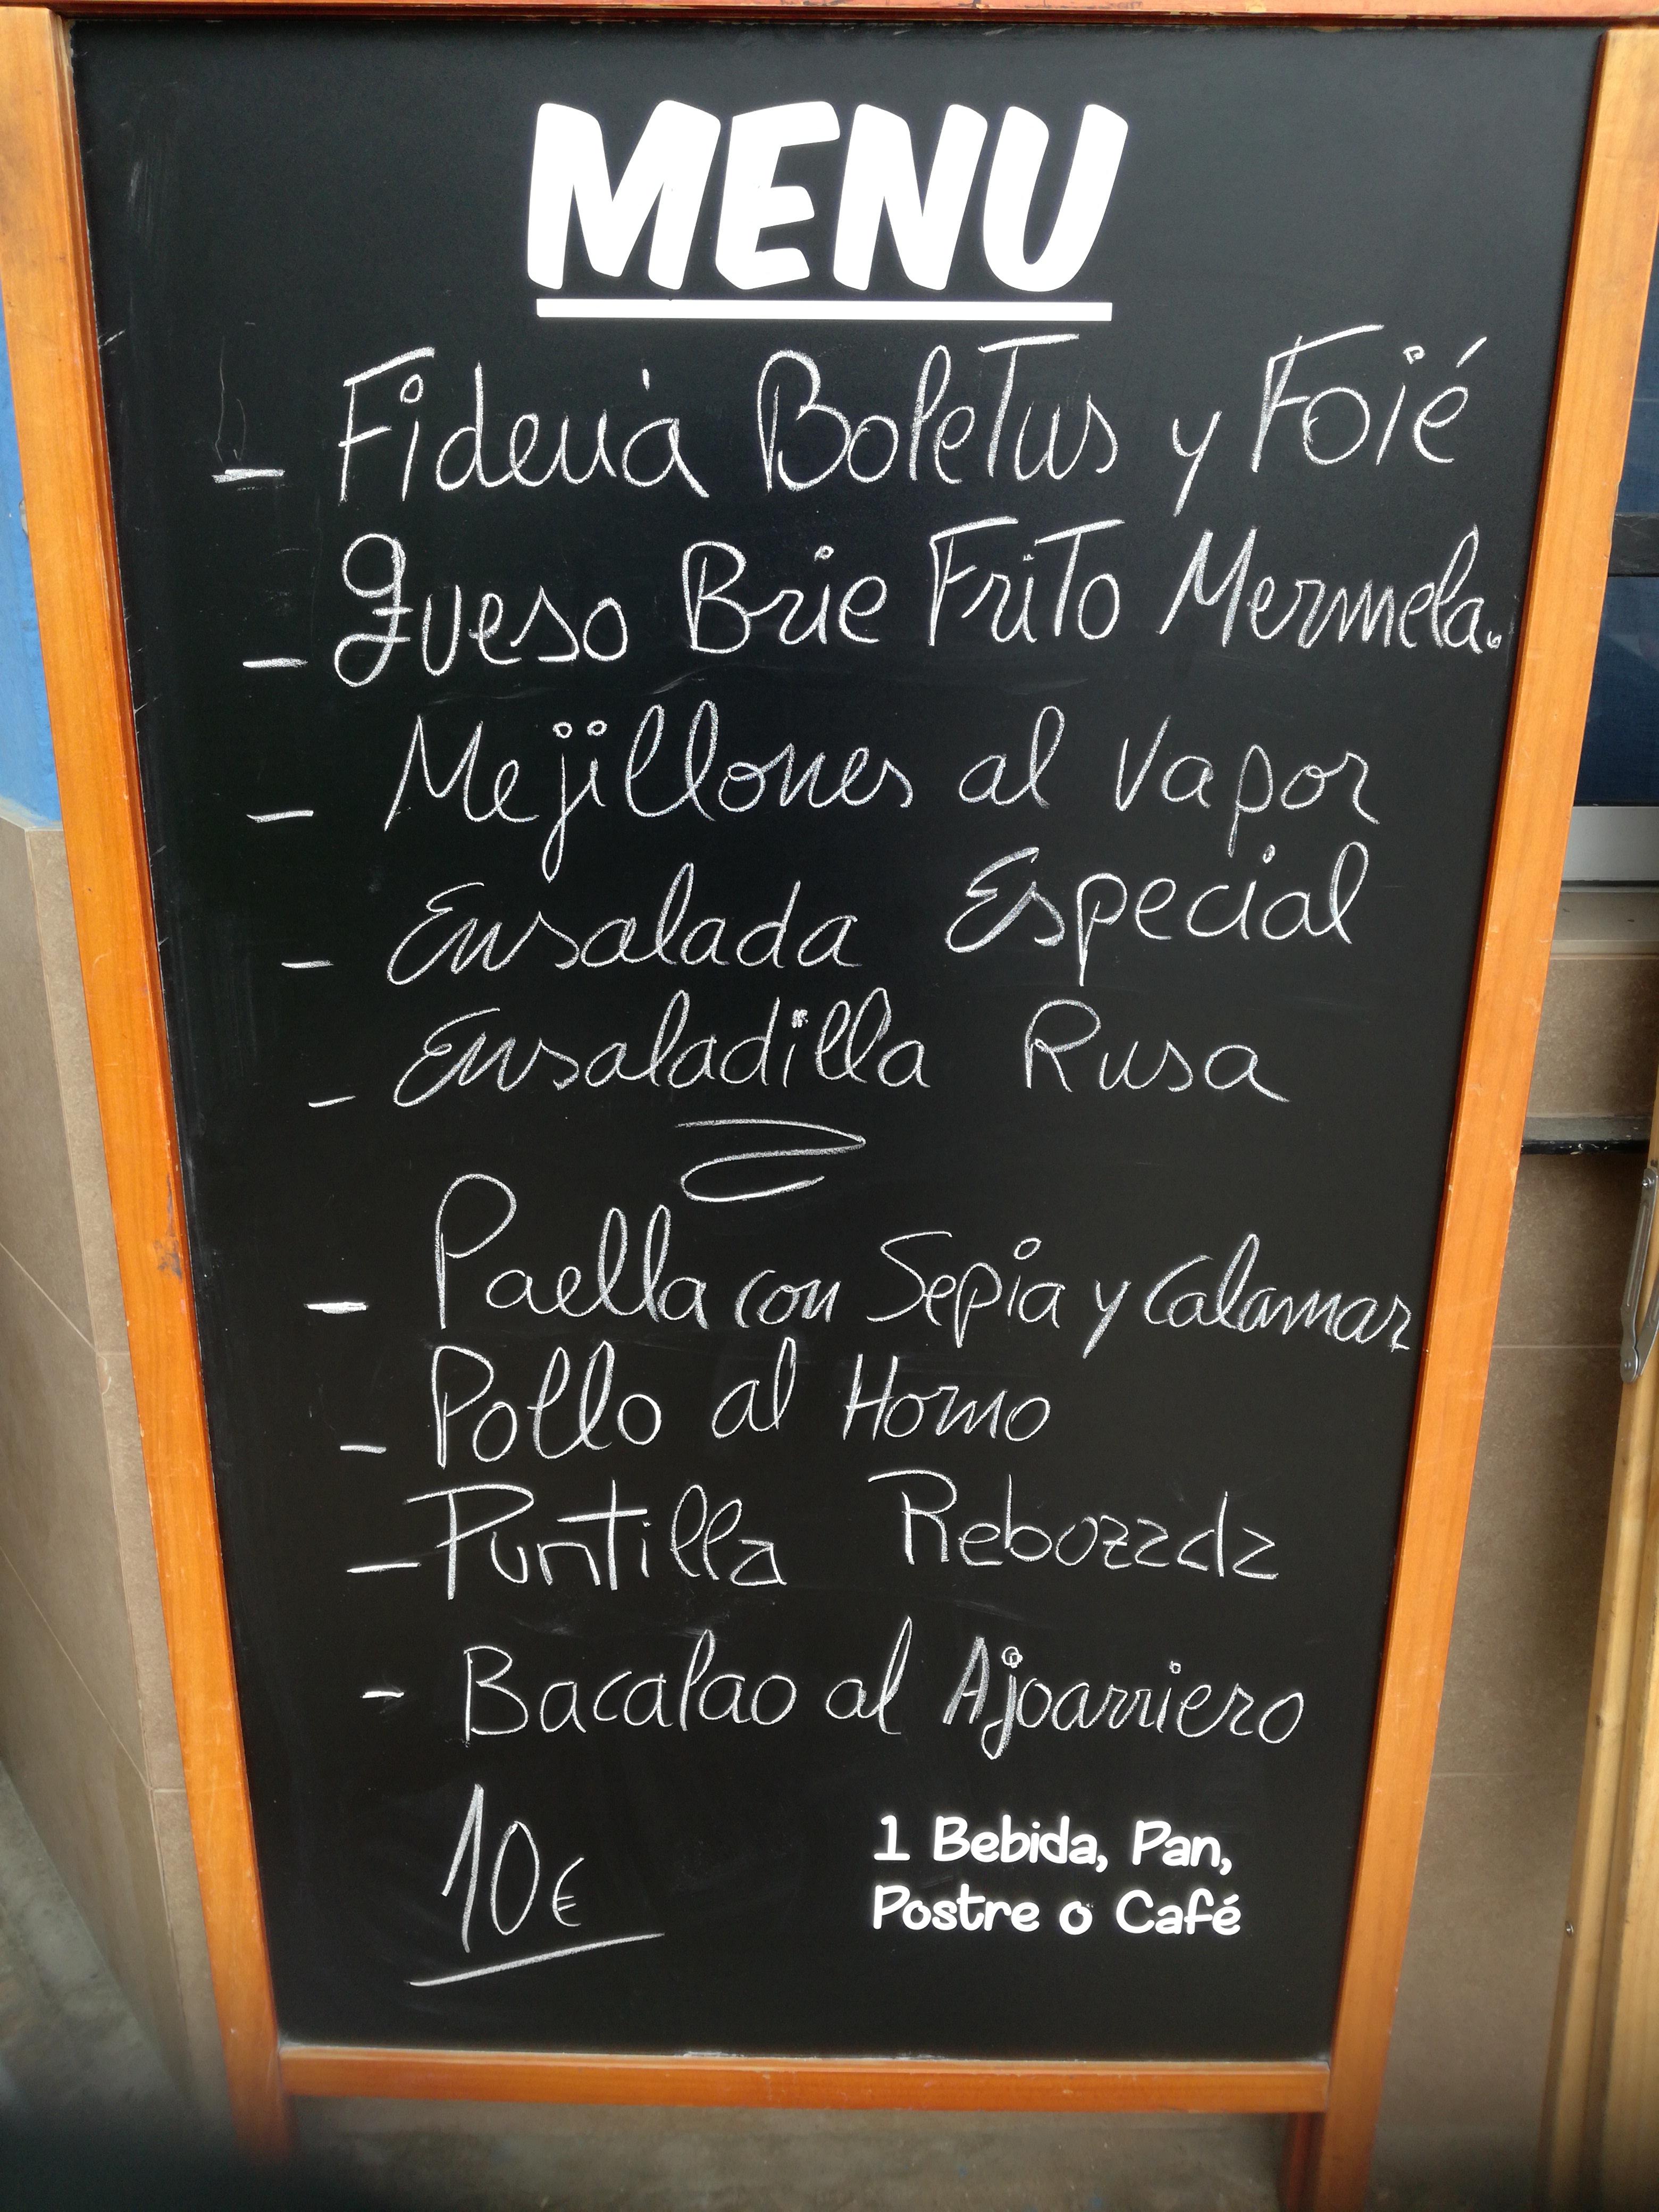 MENU
- Fideuá Boletus y Foié
- Queso Brie Frito Mermela.
- Mejillones al vapor
- Ensalada Especial
- Ensaladilla Rusa
- Paella con Sepia y Calamar
- Pollo al Horno
- Puntilla Rebozada
- Bacalao al Ajoarriero
10€
1 Bebida, Pan,
Postre o Café